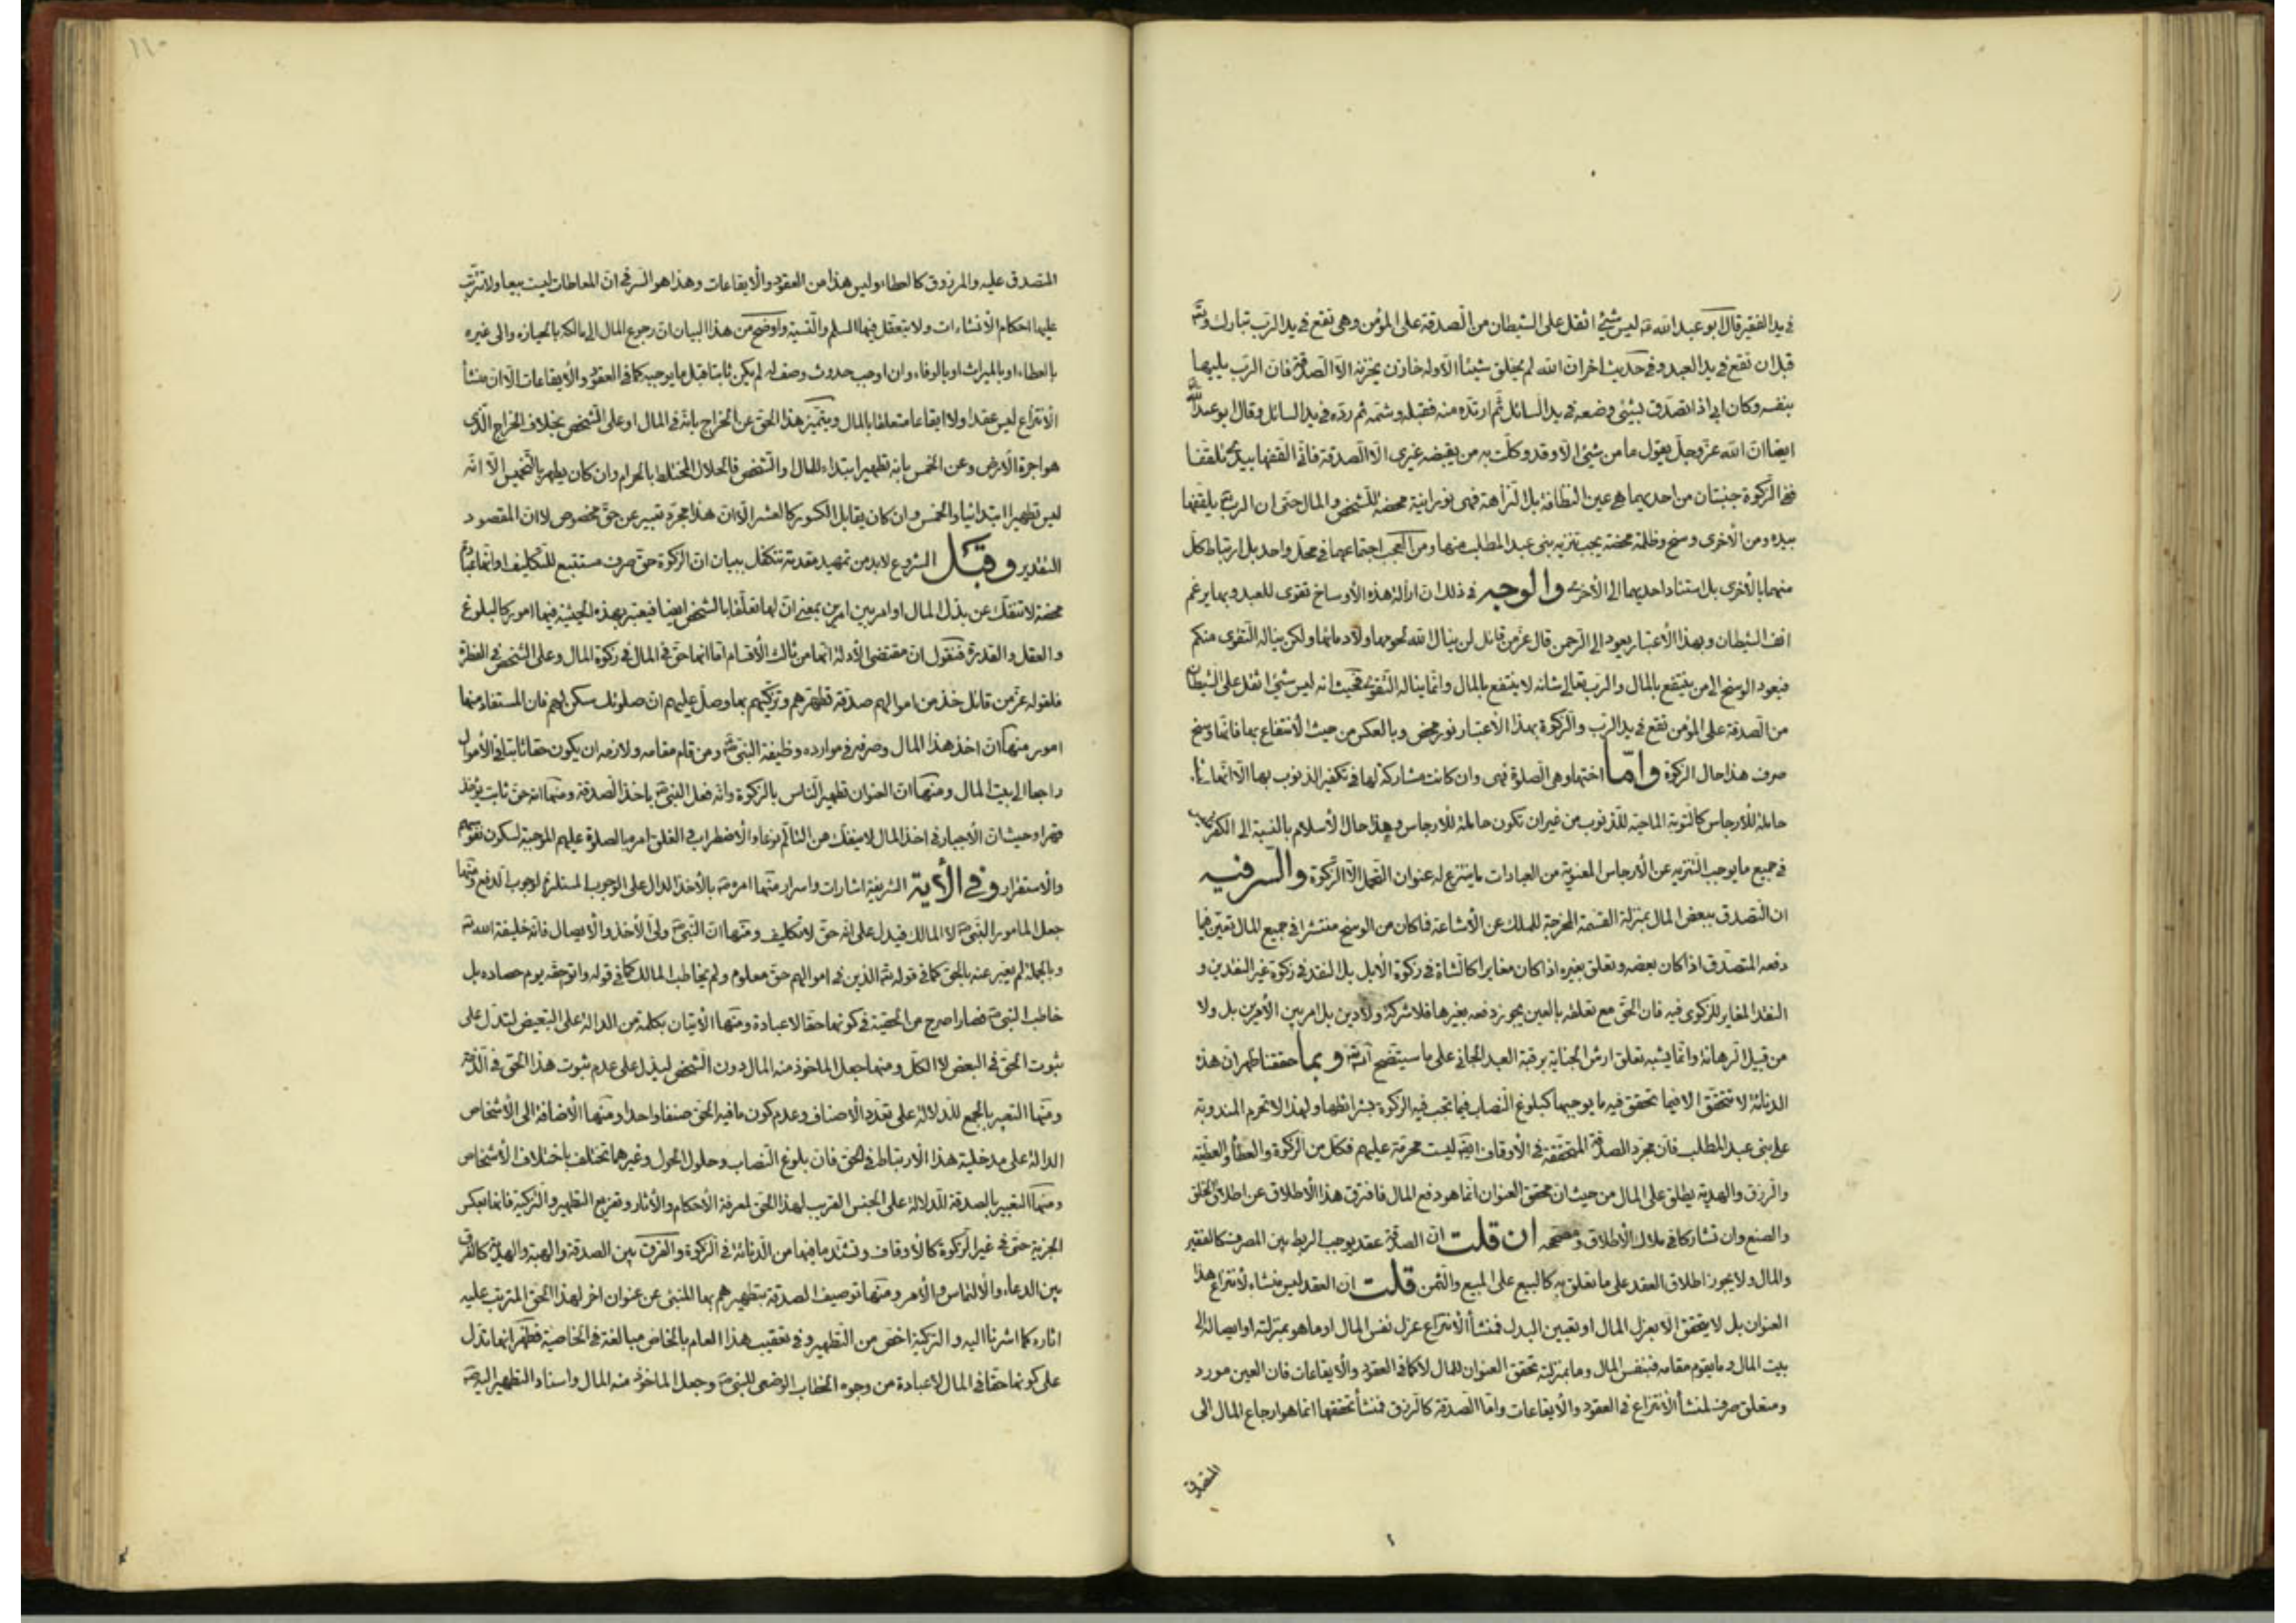 في يد الفقير قال ابو عبد الله ع ليس شيئ اثقل على الشيطان من الصدقة على المؤمن وهي تقع في يد الرب تبارك وتع
قبل ان تقع في يد العبد وفي حديث اخر ان الله لم يخلق شيئا الا وله خازن يخزنه الا الصدقة فان الرب يليها
بنفسه وكان ابي اذا تصدق بشيئ وضعه في يد السائل ثم ارتده منه فقبله وشمه ثم رده في يد السائل وقال ابو عبد الله
ايضا ان الله عز وجل يقول ما من شيئ الا وقد وكلت به من يقبضه غيري الا الصدقة فاني القفها بيدي تلقفا
ففي الزكوة جنبتان من احديهما هي عين النظافة بل النزاهة فهي نورانية محضة للشخص والمال حتى ان الرب يلقفها
بيده ومن الأخرى وسخ وظلمة محضة يجب تنزيه بني عبد المطلب منها ومن العجب اجتماعهما في محل واحد بل ارتباط كل
منهما بالأخرى بل استناد احديهما الى الأخرى والوجه في ذلك ان ازالة هذه الأوساخ تقوى للعبد وبها يرغم
انف الشيطان وبهذا الأعتبار يعود الى الرحمن قال عز من قائل لن ينال الله لحومها ولا دمائها ولكن يناله التقوى منكم
فيعود الوسخ الى من ينتفع بالمال والرب تعالى شانه لا ينتفع بالمال وانما يناله التقوى فحيث انه ليس شيئ اثقل على الشيطان
من الصدقة على المؤمن تقع في يد الرب والزكوة بهذا الأعتبار نور محض وبالعكس من حيث الأنتفاع بها فانها وسخ
صرف هذا حال الزكوة واما اختها وهي الصلوة فهي وان كانت مشاركة لها في تكفير الذنوب بها الا انها
حاملة للارجاس كالتوبة الماحية للذنوب من غير ان تكون حاملة للارجاس وهذا حال الأسلام بالنسبة الى الكفر
في جميع ما يوجب التنزيه عن الأرجاس المعنوية من العبادات ما ينتزع له عنوان التحمل الا الزكوة والسر فيه
ان التصدق ببعض المال بمنزلة القسمة المخرجة للملك عن الأشاعة فما كان من الوسخ منتشرا في جميع المال تعين فيما
دفعه المتصدق اذا كان بعضه وتعلق بغيره اذا كان مغايرا كالشاة في زكوة الأبل بل النقد في زكوة غير النقدين و
النقد المغاير للزكوي فيه فان الحق مع تعلقه بالعين يجوز دفعه بغيرها فلا شركة ولا دين بل امر بين الأمرين بل ولا
من قبيل الرهانة وانما يشبه تعلق ارش الجناية برقبة العبد الجاني على ما سيتضح انش وبما حققنا ظهر ان هذه
الدنائة لا تتحقق الا فيما تحقق فيه ما يوجبها كبلوغ النصاب فيما تجب فيه الزكوة بشرائطها ولهذا لا تحرم المندوبة
على بني عبد المطلب فان مجرد الصدقة المتحققة في الأوقاف ايضا ليست محرمة عليهم فكل من الزكوة والعطاء والعطية
والرزق والهدية يطلق على المال من حيث ان محقق العنوان انما هو دفع المال فافترق هذا الأطلاق عن اطلاق الخلق
والصنع وان تشاركا في ملاك الأطلاق ومصححه ان قلت ان الصدقة عقد يوجب الربط بين المصرف كالفقير
والمال ولا يجوز اطلاق العقد على ما تعلق به كالبيع على المبيع والثمن قلت ان العقد ليس منشاء لأنتزاع هذا
العنوان بل لا يتحقق الا بعزل المال او تعيين البدل فمنشأ الأنتزاع عزل نفس المال او ما هو بمنزلته او ايصاله الى
بيت المال وما يقوم مقامه فبنفس المال وما بمنزلته تحقق العنوان للمال لا كما في العقود والأيقاعات فان العين مورد
ومتعلق صرف لمنشأ الأنتزاع في العقود والأيقاعات واما الصدقة كالرزق فمنشأ تحققها انما هو ارجاع المال الى
المتصدق
المتصدق عليه والمرزوق كالعطاء وليس هذا من العقود والأيقاعات وهذا هو السر في ان المعاطات ليست بيعا ولا تترتب
عليها احكام الأنشاءات ولا يتعقل فيها السلم والنسية واوضح من هذا البيان ان رجوع المال الى مالكه بالحيازة والى غيره
بالعطاء او بالميراث او بالوفاء وان اوجب حدوث وصف له لم يكن ثابتا قبل ما يوجبه كما في العقود والأيقاعات الا ان منشأ
الأنتزاع ليس عقدا ولا ايقاعا متعلقا بالمال ويتميز هذا الحق عن الخراج بانه في المال او على الشخص بخلاف الخراج الذي
هو اجرة الأرض وعن الخمس بانه تطهير ابتداء للمال والشخص فالحلال المختلط بالحرام وان كان يطهر بالتخميس الا انه
ليس تطهيرا ابتدائيا والخمس وان كان يقابل الكسور كالعشر الا ان هذا مجرد تعبير عن حق مخصوص لا ان المقصود
التقدير وقبل الشروع لابد من تمهيد مقدمة تتكفل ببيان ان الزكوة حق صرف مستتبع للتكليف او انها عبادة
محضة لا تنفك عن بذل المال او امر بين امرين بمعنى ان لها تعلقا بالشخص ايضا فيعتبر بهذه الحيثية فيها امور كالبلوغ
والعقل والقدرة فنقول ان مقتضى الأدلة انها من ثالث الأقسام اما انها حق في المال في زكوة المال وعلى الشخص في الفطرة
فلقوله عز من قائل خذ من اموالهم صدقة تطهرهم وتزكيهم بها وصل عليهم ان صلوتك سكن لهم فان المستفاد منها
امور منها ان اخذ هذا المال وصرفه في موارده وظيفة النبي ص ومن قام مقامه ولازمه ان يكون حقا ثابتا في الأموال
راجعا الى بيت المال ومنها ان العنوان تطهير الناس بالزكوة وانه فعل النبي ص باخذ الصدقة ومنها انه حق ثابت يؤخذ
قهرا وحيث ان الأجبار في اخذ المال لا ينفك عن التالم نوعا والأضطراب والقلق امر بالصلوة عليهم الموجبة لسكون نفوسهم
والأستقرار وفي الأية الشريفة اشارات واسرار منها امره ص بالأخذ الدال على الوجوب المستلزم لوجوب الدفع ومنها
جعل المامور النبي ص لا المالك فيدل على انه حق لا تكليف ومنها ان النبي ص ولي الأخذ والأيصال فانه خليفة الله تع
وبالجملة لم يعبر عنه بالحق كما في قوله تع الذين في اموالهم حق معلوم ولم يخاطب المالك كما في قوله واتو حقه يوم حصاده بل
خاطب النبي ص فصار اصرح من الحقية في كونها حقا لا عبادة ومنها الأتيان بكلمة من الدالة على التبعيض لتدل على
ثبوت الحق في البعض لا الكل ومنها جعل الماخوذ منه المال دون الشخص ليدل على عدم ثبوت هذا الحق في الذمة
ومنها التعبير بالجمع للدلالة على تعدد الأصناف وعدم كون ما فيه الحق صنفا واحدا ومنها الأضافة الى الأشخاص
الدالة على مدخلية هذا الأرتباط في الحق فان بلوغ النصاب وحلول الحول وغيرهما تختلف باختلاف الأشخاص
ومنها التعبير بالصدقة للدلالة على الجنس القريب لهذا الحق لمعرفة الأحكام والأثار وتفريع التطهير والتزكية فانها تعكس
الحزنية حتى في غير الزكوة كالأوقاف وتشتد ما فيها من الدنائة في الزكوة والفرق بين الصدقة والهبة والهدية كالفرق
بين الدعاء والألتماس والأمر ومنها توصيف الصدقة بتطهيرهم بها المنبئ عن عنوان اخر لهذا الحق المترتب عليه
اثاره كما اشرنا اليه والتزكية اخص من التطهير وفي تعقيب هذا العام بالخاص مبالغة في الخاصية فظهر انها تدل
على كونها حقا في المال لا عبادة من وجوه الخطاب الوضعي للنبي ص وجعل الماخوذ منه المال واسناد التطهير اليه ص